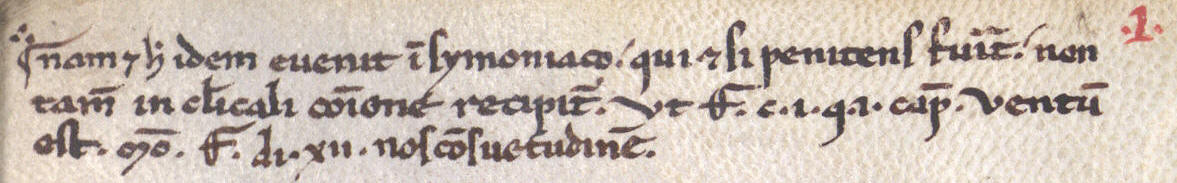 nam ⁊ h̄ idem euenit ī symoniaco. qui ⁊ si penitens fuīt. non .1.
tam̄ in cl̄icali cōione recipit̄. vt ff. c. i. q. i. cap̄. ventū
est. 
di. xii. nos cōsuetudinē.